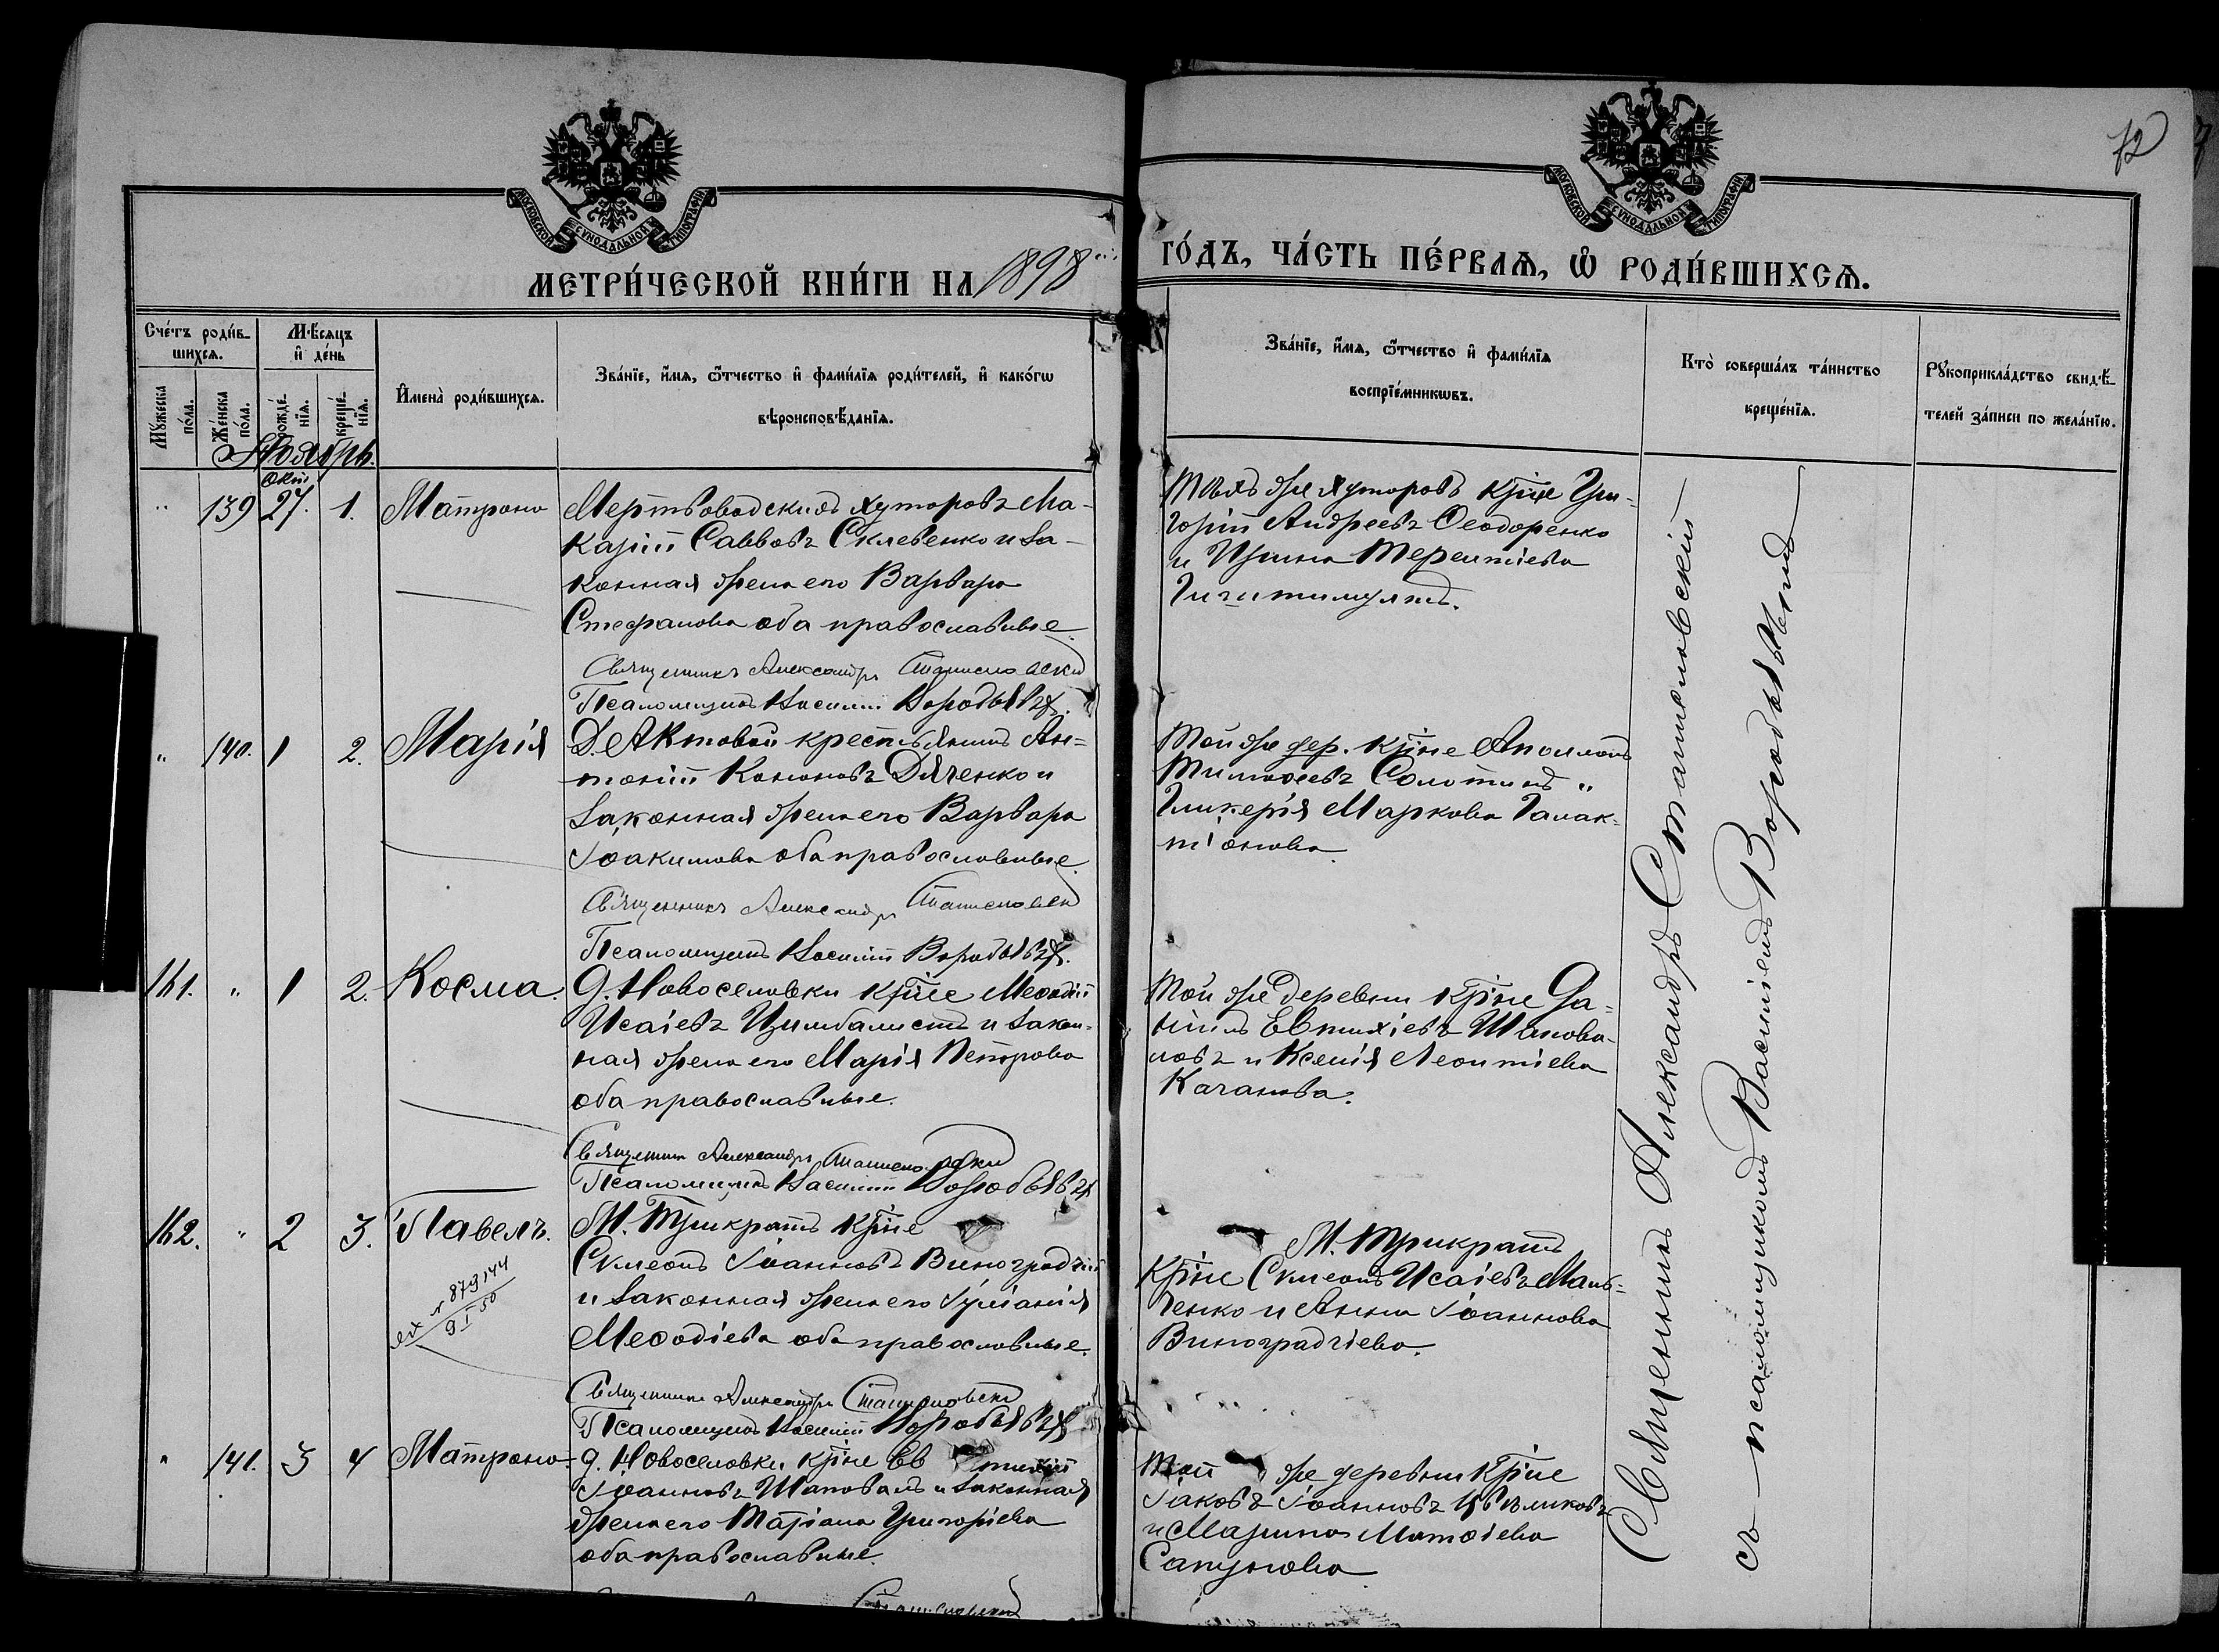 72
МОСКОВСКОЙ СѴНОДАЛЬНОЙ ТИПОГРАФІИ
МОСКОВСКОЙ СѴНОДАЛЬНОЙ ТИПОГРАФІИ
МЕТРИ́ЧЕСКОЙ КНИ́ГИ НА 1898
ГО́ДЪ, ЧА́СТЬ ПЕ́РВАѦ, Ѽ РОДИ́ВШИХСѦ.
Сче́тъ роди́в-
шихсѧ.
Мѣ́сѧцъ
и҆ де́нь
Мꙋ́жеска
по́ла.
Же́нска
по́ла.
рожде́-
нїѧ.
креще́-
нїѧ.
И҆мена̀ роди́вшихсѧ.
Зва́нїе, и҆́мѧ, ѻ҆́тчество и҆ фами́лїѧ роди́телей, и҆ како́гѡ
вѣроисповѣ́данїѧ.
Зва́нїе, и҆́мѧ, ѻ҆́тчество и҆ фами́лїѧ
воспрїе́мникѡвъ.
Кто̀ соверша́лъ та́инство
креще́нїѧ.
Рꙋкоприкла́дство свидѣ́-
телей за́писи по жела́нїю.
Ноябрь.
" 139 27. 1. Матрона
Мертвоводскихъ хуторовъ Ма-
карій Саввовъ Склевенко и за-
конная жена его Варвара
Стефанова оба православные.
Священникъ Александръ Станиславскій
Псаломщикъ Василій Воробьевъ
Тѣхъ же хуторовъ кр-не Гри-
горій Андреевъ Ѳеодоренко
и Ирина Терентіева
" 140. 1 2. Марія
Д. Актовой крестьянинъ Ан-
тоній Кононовъ Дяченко и
законная жена его Варвара
Іоакимова оба православные.
Священникъ Александръ Станиславскій
Псаломщикъ Василій Воробьевъ
Той же дер. кр-не Аполлонъ
Тимоѳеевъ
Гликерія Маркова Галак-
тіонова
161. " 1 2. Косма.
д. Новоселовки кр-не Меѳодій
Исаіевъ Цимбалистъ и закон-
ная жена его Марія Петрова
оба православные.
Священникъ Александръ Станиславскій
Псаломщикъ Василій Воробьевъ
Той же деревни кр-не Да-
ніилъ Евтихіевъ Шапова-
ловъ и Ксенія Леонтіева
Качанова.
162. " 2 3. Павелъ.
873144
9 I 50
М. Трикратъ кр-не
Сѵмеонъ Іоанновъ Виноградчій
и законная жена его Іуліанія
Меѳодіева оба православные.
Священникъ Александръ Станиславскій
Псаломщикъ Василій Воробьевъ
М. Трикратъ
кр-не Сѵмеонъ Исаіевъ
и Анна Іоаннова
Виноградчіева.
" 141. 3 4 Матрона
д. Новоселовки кр-не Ев тихій
Іоанновъ Шаповалъ и законная
жена его Татіана Григоріева
оба православные.
Той же деревни кр-не
Іаковъ Іоанновъ Цвѣликовъ
и Марина Матѳіева
Сапунова
Священникъ Александръ Станиславскій
съ псаломщикомъ Василіемъ Воробьевымъ